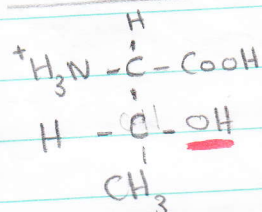 H
+H3N - C - COOH
H - C - OH
CH3